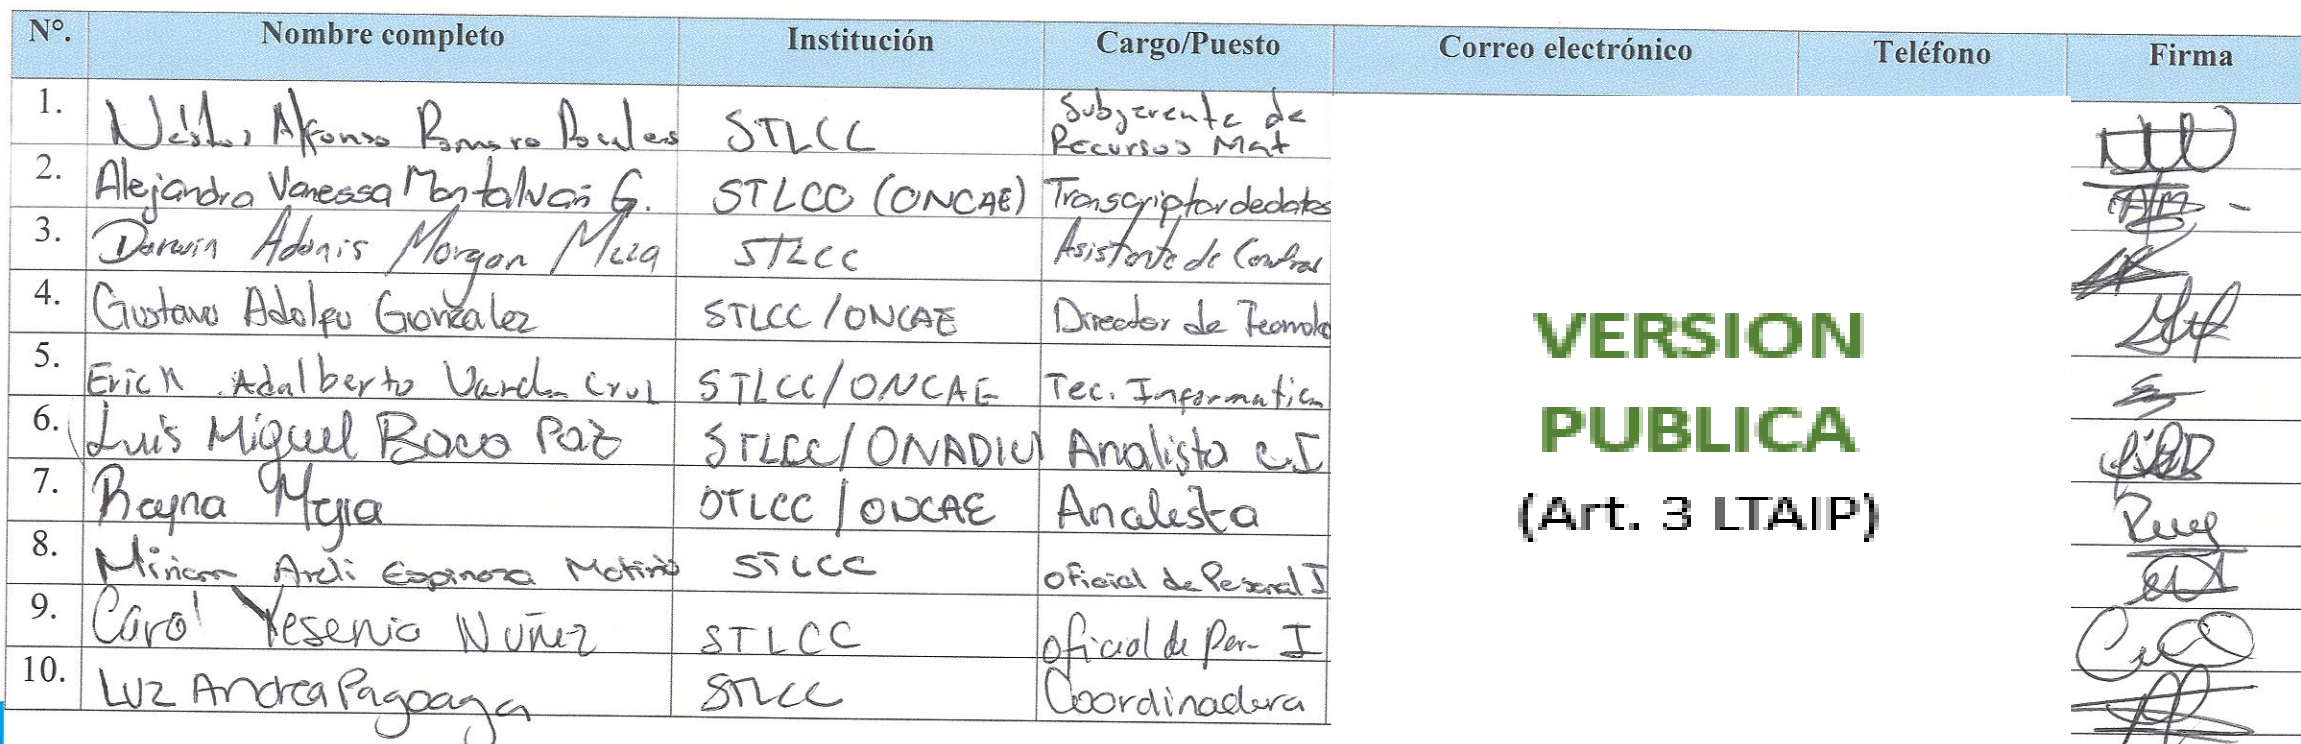 N°. Nombre completo Institución Cargo/Puesto Correo electrónico Teléfono Firma
1. Alfonso STLCC Subgerente de
Recursos Mat
2. Alejandra Vanessa Montalván G. STLCC (ONCAE) Transcriptor de datos
3. Darwin Adonis Morgan Meza STLCC Asistente de
4. Gustavo Adolfo González STLCC/ONCAE Director de
5. Erick Adalberto STLCC/ONCAE Tec. Informatica
6. Luis Miguel Baca Paz STLCC/ Analista
7. Rayna Mejia STLCC/ONCAE Analista
8. Espinoza STLCC Oficial de Personal I
9. Carol Yesenia Nuñez STLCC Oficial de Per- I
10. Luz Andrea Pagoaga STLCC Coordinadora
VERSION
PUBLICA
(Art. 3 LTAIP)